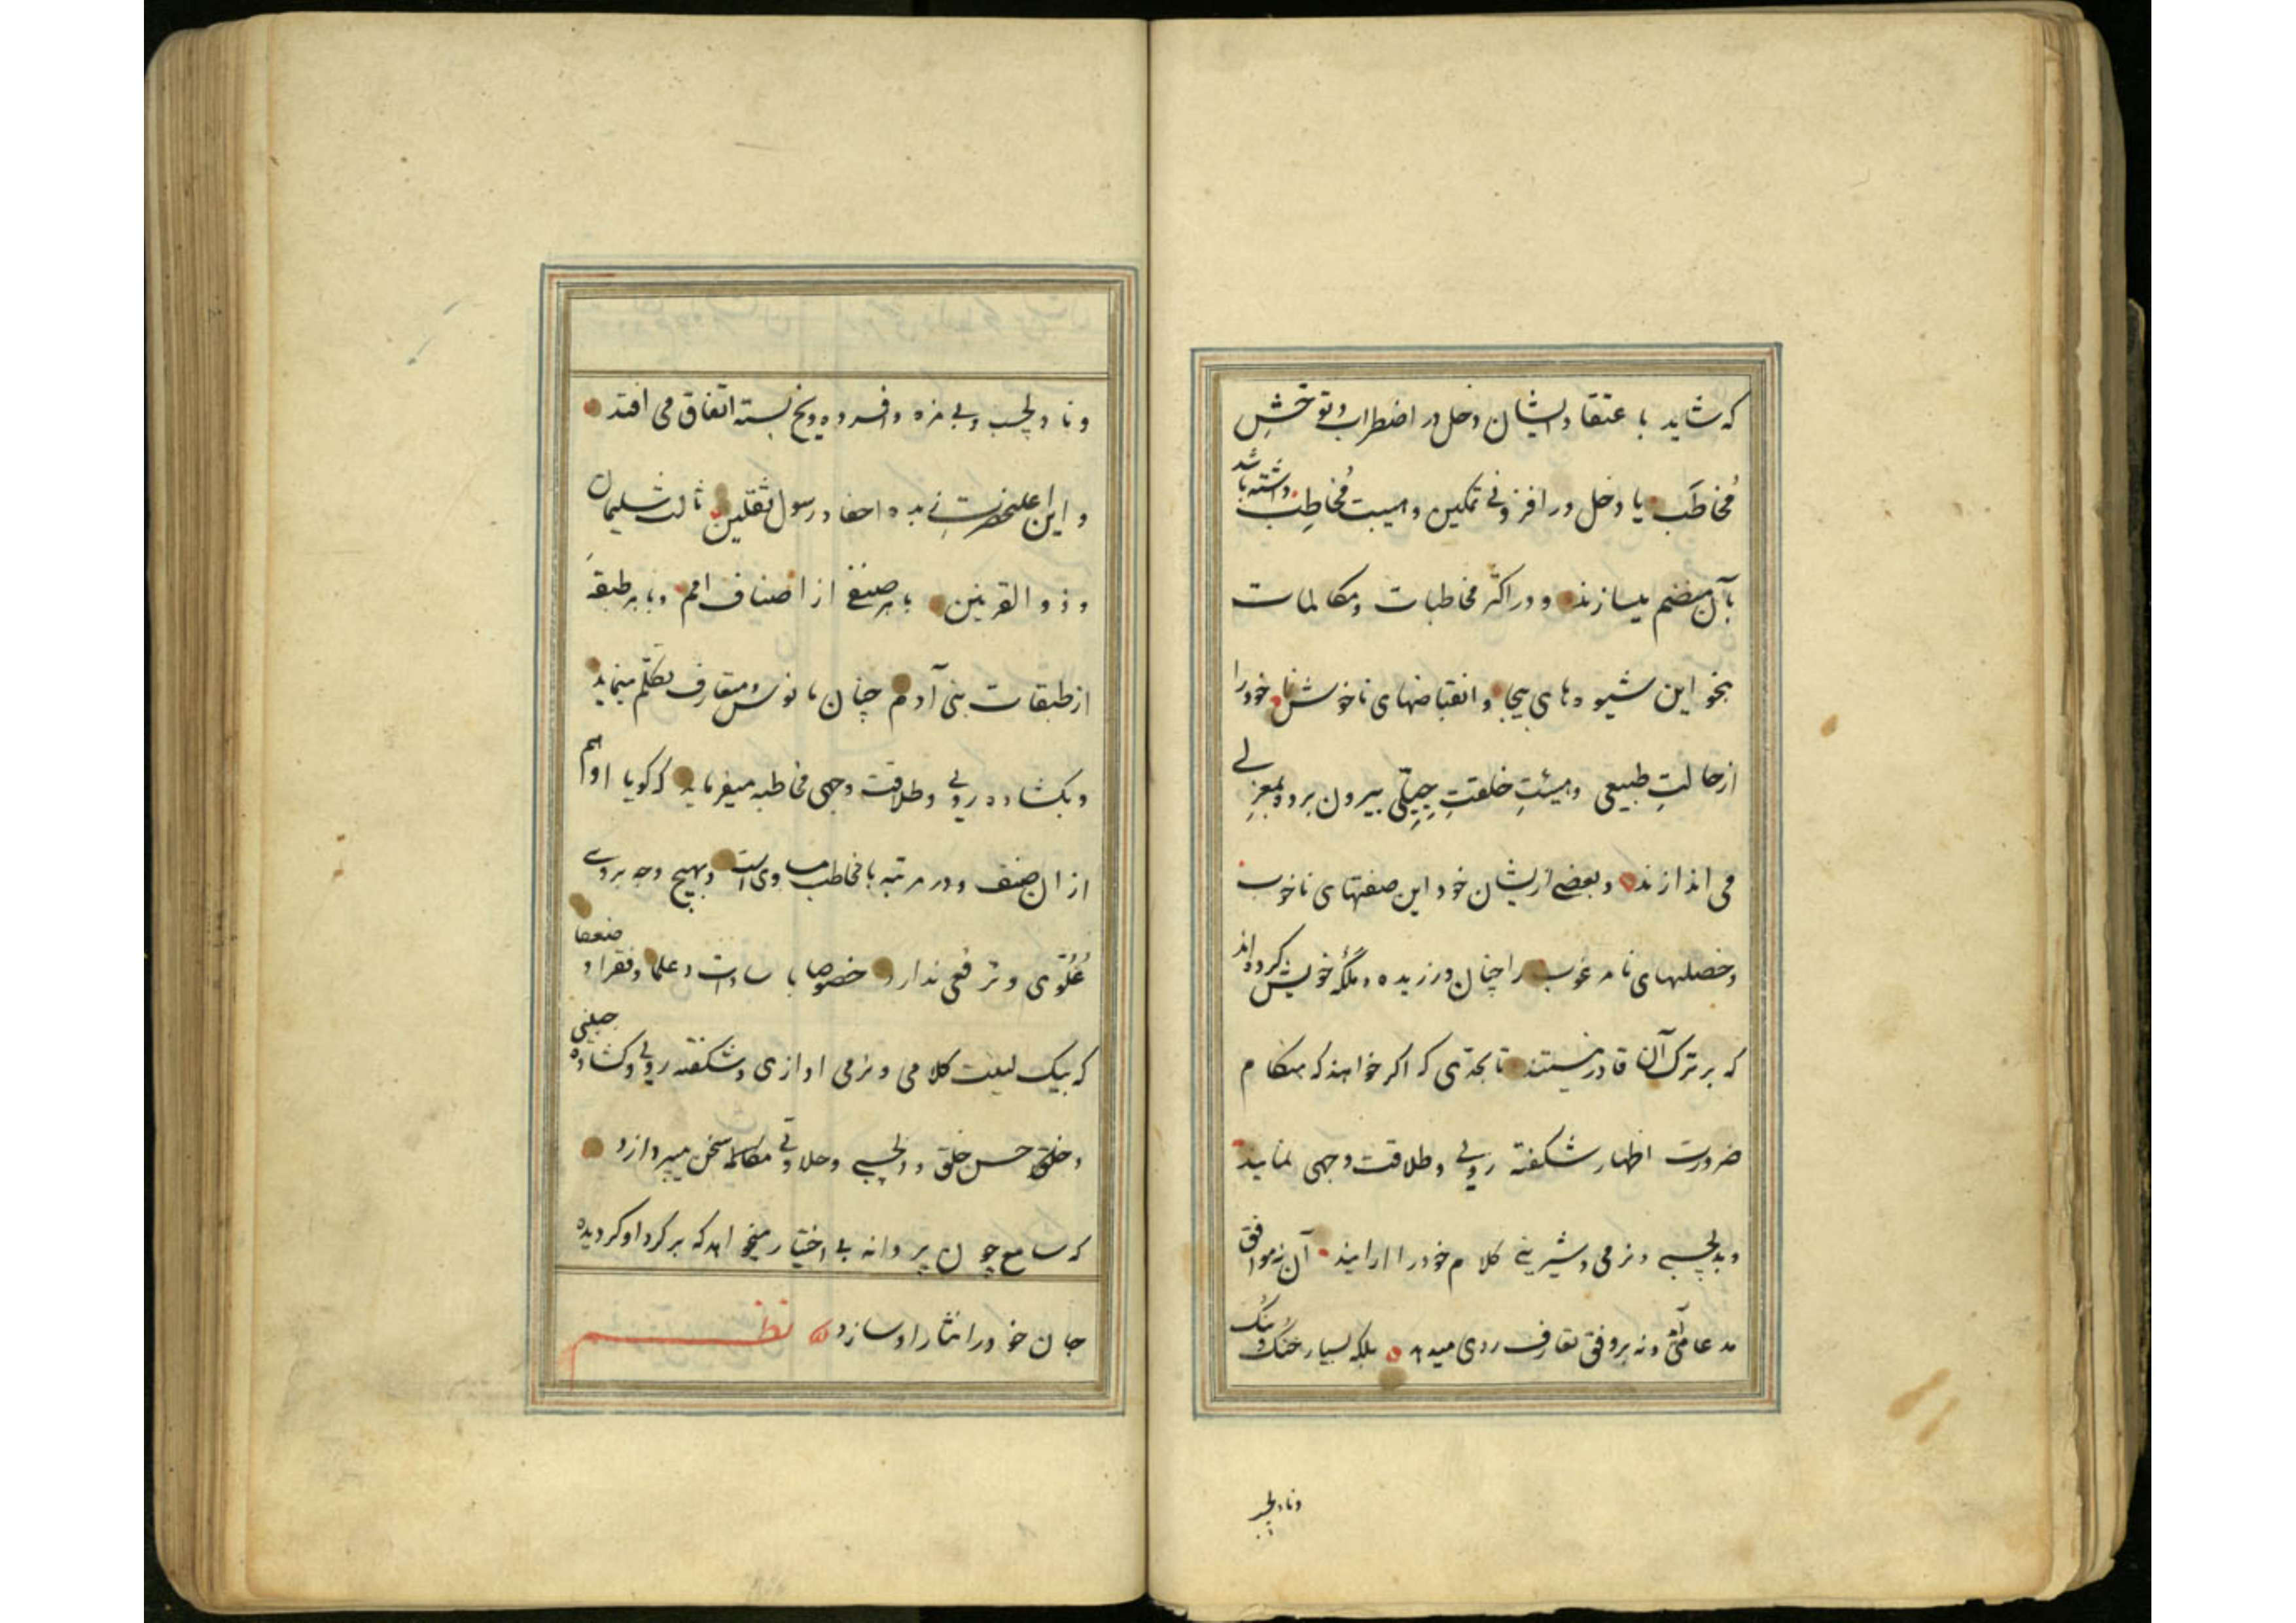 که شاید با عتقاد ایشان دخل در اضطراب و توحّشِ
مُخاطَب یا دخل در افزونی تمکین و هیبت مُخاطِب داشته باشد
بآن منضم میسازند و در اکثر مخاطبات و مکالمات
بنحو این شیوه های بیجا و انقباضهای ناخوش نما خود را
از حالتِ طبیعی و هیئتِ خلقتِ جِبِلّی بیرون برده بمعزلی
می اندازند و بعضی ازیشان خود این صفتهای ناخوب
و خصلهای نامرغوب را چنان ورزیده و ملکهٔ خویش کرده اند
که بر ترک آن قادر نیستند تا بحدّی که اکر خواهند که هنکام
ضرورت اظهار شکفته رویی و طلاقت وجهی نمایند
و بدلچسپی و نرمی و شیرینی کلام خود را آرایند آن نه موافق
مدعا متأتی و نه بر وفق تعارف روی میدهد بلکه بسیار خنک و مُنک
و نادلچسپ
و نادلچسب و بی مزه و افسرده و یخ بسته اتفاق می افتد
و این اعلیحضرت زبده احفاد رسول ثقلین ثالث سلیمان
و ذو القرنین با هر صنفی از اصناف امم و با هر طبقهٔ
از طبقات بنی آدم چنان مانوس و متعارف تکلّم مینماید
و بکشاده رویی و طلاقت وجهی مخاطبه میفرماید که کویا او هم
از ان صنف و در مرتبه با مخاطب مساوی است و بهیچ وجه بر وی
عُلُوّی و ترفّعی ندارد خصوصا با سادات و علما و فقرا و ضعفا
که بیک لینت کلامی و نرمی اوازی و شکفته رویی و کشاده جبینی
و خلق حسن خلق و دلچسپی و حلاوتی مکالمه سخن میپردازد
که سامع چون پروانه بی اختیار میخواهد که بر کرد او کردیده
جان خود را نثار او سازد نظم